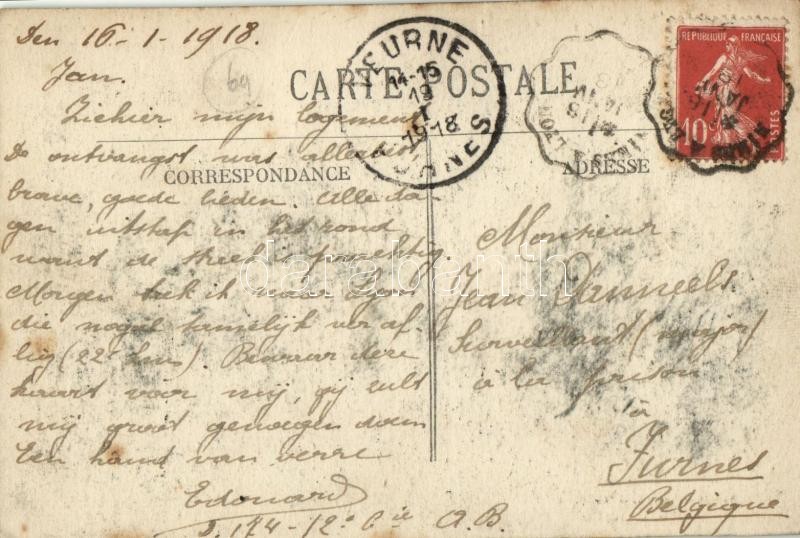 Den 16-1-1918.
69
Jan.
CARTE POSTALE
VEURNE
14-15
19
I
19-18
FURNES
RÉPUBLIQUE FRANÇAISE
10c
POSTES
Ziehier mijn logement
De ontvangst was allerbest
CORRESPONDANCE
ADRESSE
brave, goede lieden. Alle da
gen uitstap in het rond
want de streek is prachtig.
Morgen trek ik naar Lyon
die nogal tamelijk ver af
lig (22 kms). Bewaar deze
kaart voor mij, gij zult
mij groot genoegen doen
Een hand van verre
Edouard
D. 174 - 12e Cie A.B.
Monsieur
Jean Danneels
Surveillant (major)
à la prison
à
Furnes
Belgique
darabanth